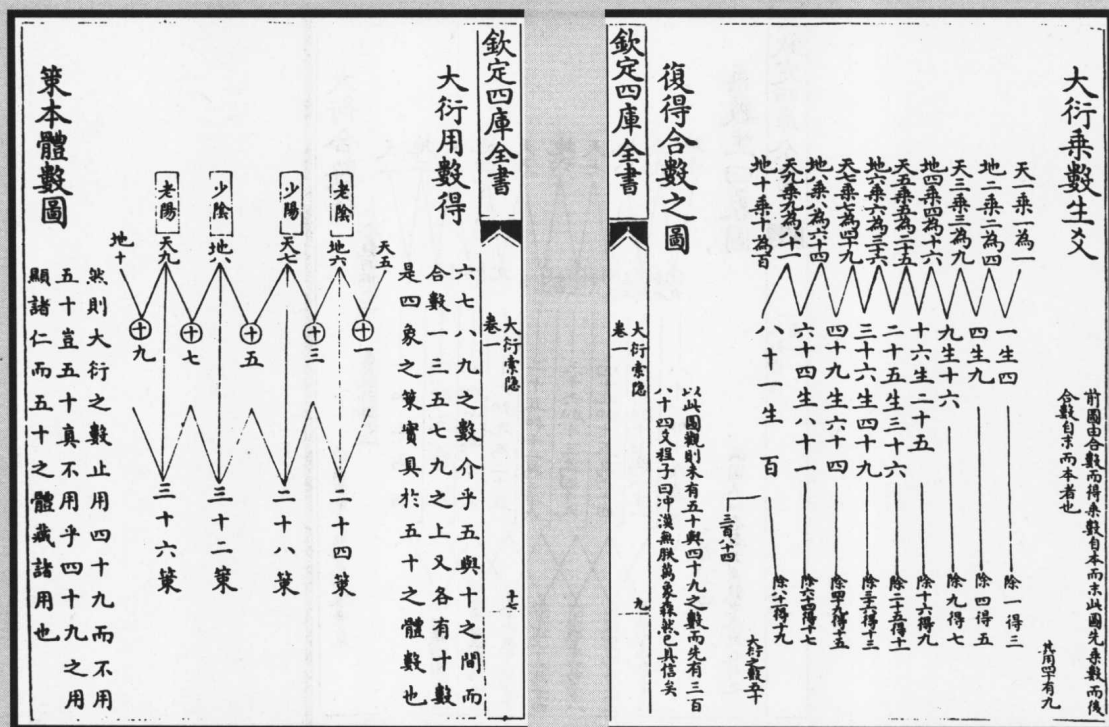 大衍乘數生爻
前圖由合數而得乘數自本而末此圖先乘數而後
合數自末而本者也
天一乘一為一
地二乘二為四
天三乘三為九
地四乘四為十六
天五乘五為二十五
地六乘六為三十六
天七乘七為四十九
地八乘八為六十四
天九乘九為八十一
地十乘十為百
一生四
四生九
九生十六
十六生二十五
二十五生三十六
三十六生四十九
四十九生六十四
六十四生八十一
八十一生百
其用四十有九
除一得三
除四得五
除九得七
除十六得九
除二十五得十一
除三十六得十三
除四十九得十五
除六十四得十七
除八十一得十九
大衍之數五十
三百八十四
復得合數之圖
以此圖觀則未有五十與四十九之數而先有三百
八十四爻程子曰沖漠無朕萬象森然已具信矣
欽定四庫全書
大衍索隱
卷一
九
欽定四庫全書
大衍索隱
卷一
大衍用數得
六七八九之數介乎五與十之間而
合數一三五七九之上又各有十數
是四象之策實具於五十之體數也
老陰
少陽
少陰
老陽
天五
地六
天七
地八
天九
地十
十一
十三
十五
十七
十九
二十四策
二十八策
三十二策
三十六策
然則大衍之數止用四十九而不用
五十豈五十真不用乎四十九之用
顯諸仁而五十之體藏諸用也
策本體數圖